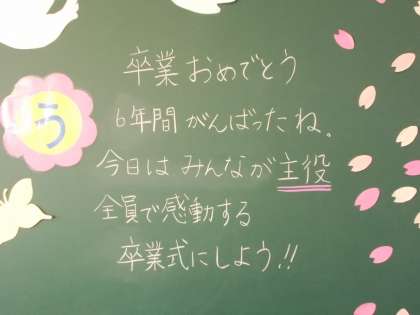 卒業おめでとう
う
6年間がんばったね。
今日はみんなが主役
全員で感動する
卒業式にしよう!!